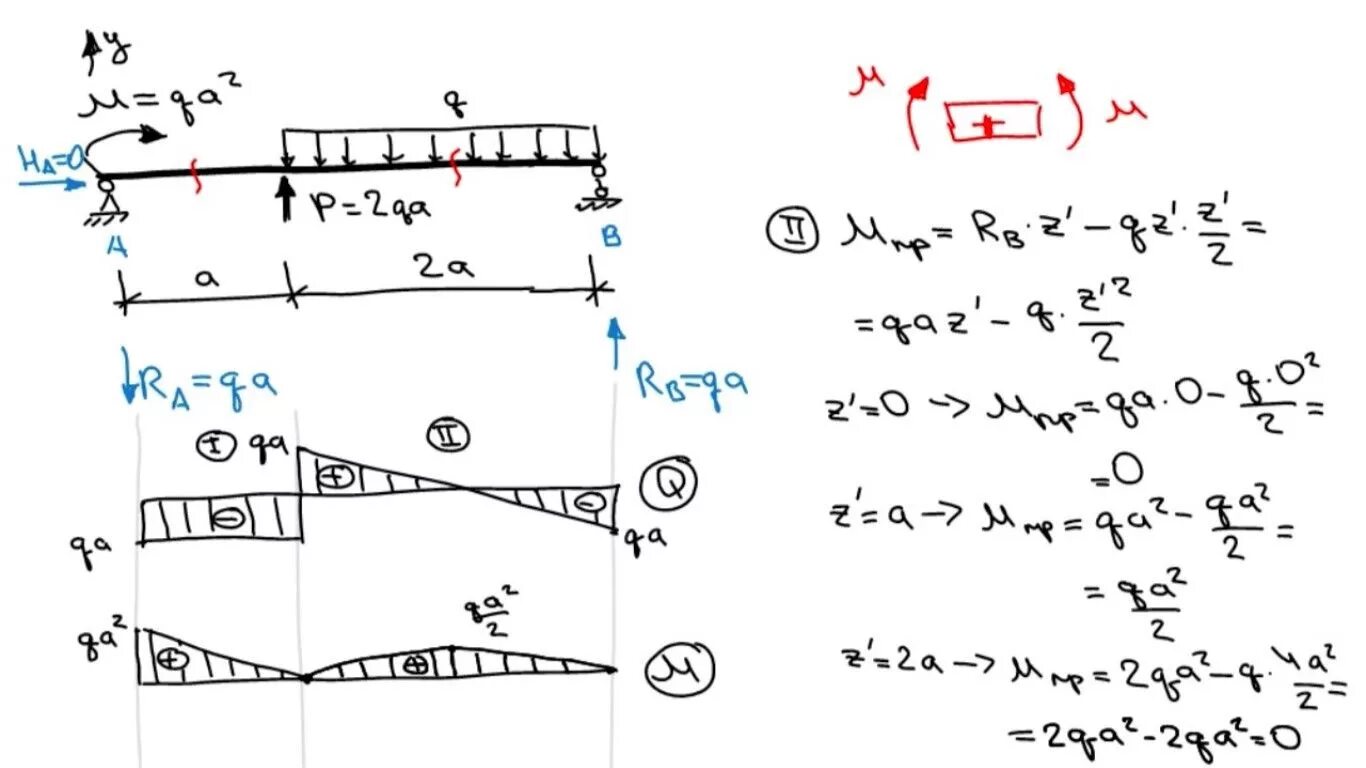 y
M = qa²
q
H_A=0
P=2qa
A
B
a
2a
R_A=qa
R_B=qa
I
qa
II
+
-
-
Q
qa
qa
qa²
+
qa²/2
+
M
M
+
M
II M_пр = R_B·z' - qz'·z'/2 =
= qaz' - q·z'²/2
z'=0 → M_пр = qa·0 - q·0²/2 =
=0
z'=a → M_пр = qa² - qa²/2 =
= qa²/2
z'=2a → M_пр = 2qa² - q·4a²/2 =
= 2qa² - 2qa² = 0